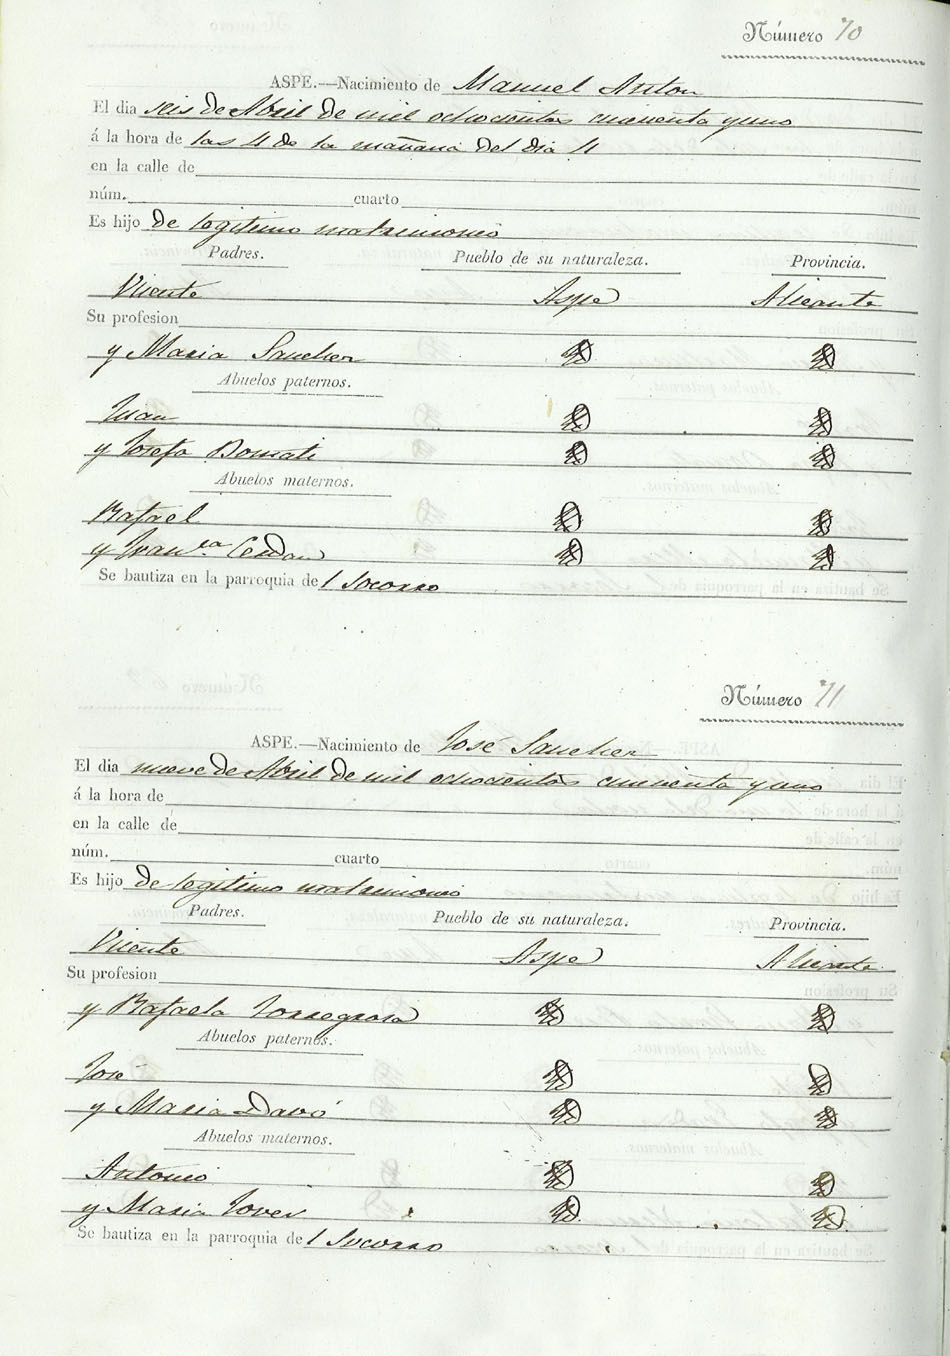 Número 70
ASPE.—Nacimiento de Manuel Anton
El dia seis de Abril de mil ochocientos cincuenta y uno
á la hora de las 4 de la mañana del dia 4
en la calle de
núm. cuarto
Es hijo de legitimo matrimonio
Padres. Pueblo de su naturaleza. Provincia.
Vicente Aspe Alicante
Su profesion
y Maria Sanchez
Abuelos paternos.
Juan
y Josefa Bonmati
Abuelos maternos.
Rafael
y Fran.ca Cerdan
Se bautiza en la parroquia del Socorro
Número 71
ASPE.—Nacimiento de José Sanchez
El dia nueve de Abril de mil ochocientos cincuenta y uno
á la hora de
en la calle de
núm. cuarto
Es hijo de legitimo matrimonio
Padres. Pueblo de su naturaleza. Provincia.
Vicente Aspe Alicante
Su profesion
y Rafaela Torregrosa
Abuelos paternos.
José
y Maria Davó
Abuelos maternos.
Antonio
y Maria Jover
Se bautiza en la parroquia del Socorro